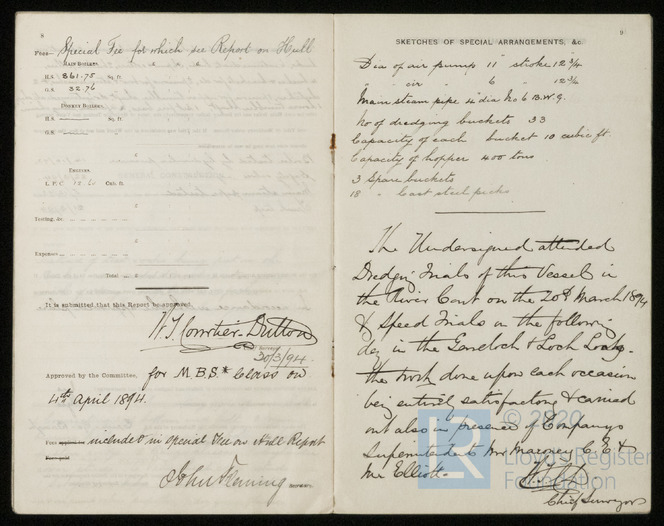 8
Fees Special Fee for which see Report on Hull
MAIN BOILERS.
H.S. 861.75 Sq. ft.
G.S. 32.76
DONKEY BOILERS.
H.S. Sq. ft.
G.S.
£
ENGINES.
L.P.C. 12.6 Cub. ft.
£
Testing, &c.
£
Expenses
Total £
It is submitted that this Report be approved,
W. J. Dutton
30/3/94.
Approved by the Committee, for M.B.S.* Class on
4th April 1894.
Fees included in special Fee on Hull Report
John Fleming
9
SKETCHES OF SPECIAL ARRANGEMENTS, &c.
Dia of air pumps 11 stroke 12 3/4
" cir " 6 " 12 3/4
Main steam pipe 4 dia No 6 B.W.G.
No of dredging buckets 33
Capacity of each bucket 10 cubic ft
Capacity of hopper 400 tons
3 Spare buckets
18 " Cast steel picks
The Undersigned attended
Dredging Trials of this Vessel in
the River Cart on the 20th March 1894
& Speed Trials on the following
day in the Gareloch & Loch Long.
the work done upon each occasion
being entirely satisfactory & carried
out also in presence of Companys
Superintendents Mr C.E. &
Mr Elliott.
Chief Surveyor
LR © 2020
Lloyd's Register
Foundation